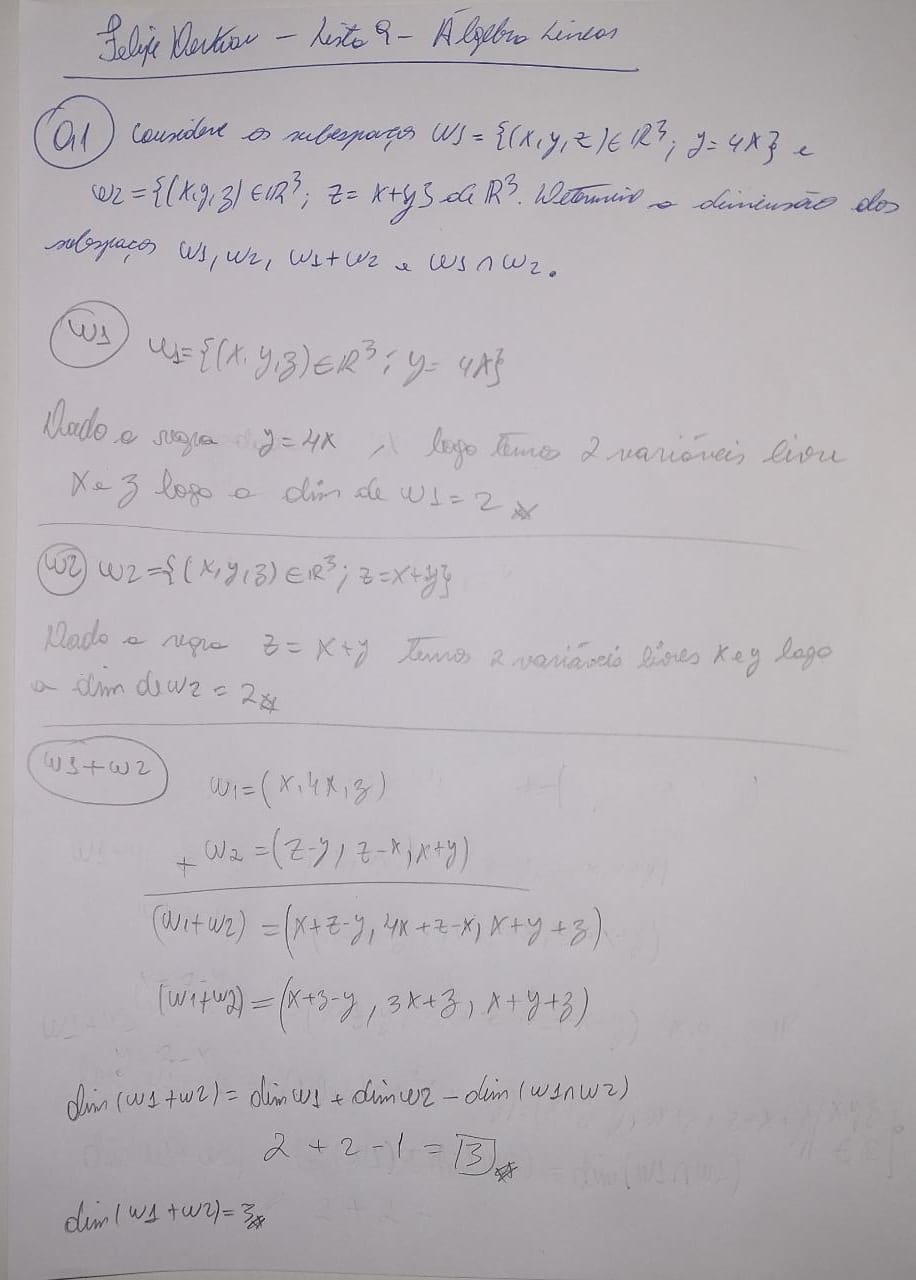 Felipe — Lista 9 — Álgebra Linear
Q1 Considere os subespaços W1 = {(x,y,z) ∈ ℝ³; y = 4x} e
W2 = {(x,y,z) ∈ ℝ³; z = x+y} de ℝ³. Determine a dimensão dos
subespaços W1, W2, W1+W2 e W1∩W2.
W1 W1 = {(x,y,z) ∈ ℝ³; y = 4x}
Dado a regra y = 4x, logo temos 2 variáveis livre
x e z logo a dim de W1 = 2
W2 W2 = {(x,y,z) ∈ ℝ³; z = x+y}
Dado a regra z = x+y temos 2 variáveis livres x e y logo
a dim de W2 = 2
W1+W2
W1 = (x, 4x, z)
+ W2 = (z-y, z-x, x+y)
(W1+W2) = (x+z-y, 4x+z-x, x+y+z)
(W1+W2) = (x+z-y, 3x+z, x+y+z)
dim(W1+W2) = dim W1 + dim W2 - dim(W1∩W2)
2 + 2 - 1 = 3
dim(W1+W2) = 3